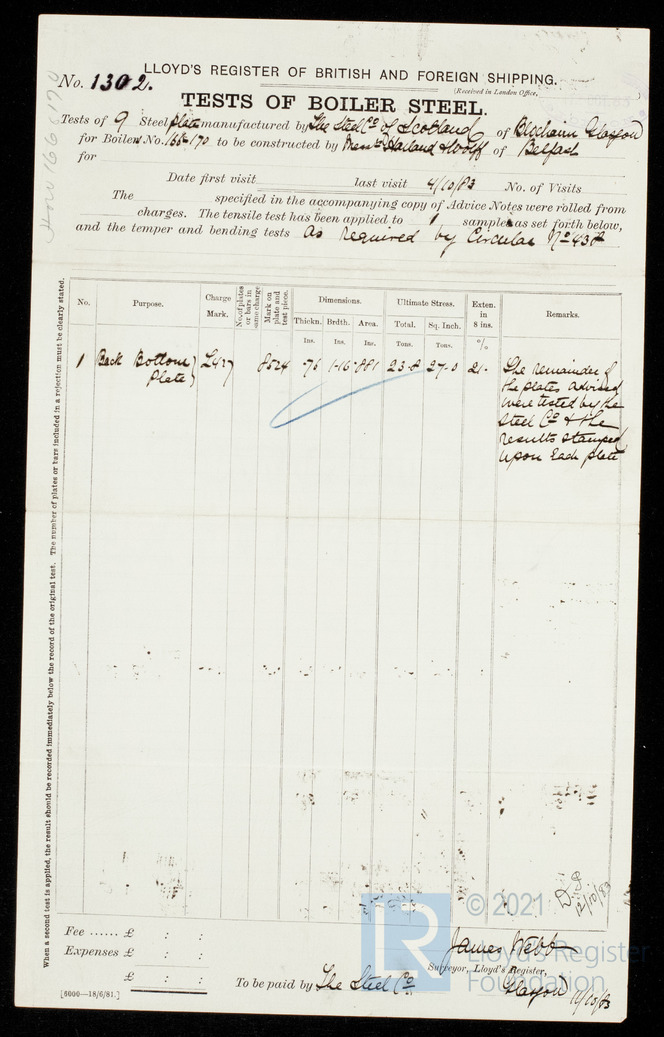 LLOYD'S REGISTER OF BRITISH AND FOREIGN SHIPPING.
No. 1302.
(Received in London Office,
TESTS OF BOILER STEEL.
Tests of 9 Steel plates manufactured by The Steel Co of Scotland of Blochairn Glasgow
for Boilers No. 166-170 to be constructed by Messrs Harland & Wolff of Belfast
for
Date first visit last visit 4/10/83 No. of Visits
The specified in the accompanying copy of Advice Notes were rolled from
charges. The tensile test has been applied to 1 sample as set forth below,
and the temper and bending tests as required by Circular No 438
No. Purpose. Charge Mark. No. of plates or bars in same charge Mark on plate and test piece. Dimensions. Ultimate Stress. Exten. in 8 ins. Remarks.
Thickn. Brdth. Area. Total. Sq. Inch.
Ins. Ins. Ins. Tons. Tons. %
1 Back Bottom Plate L427 8524 .76 1.16 .881 23.8 27.0 21.
The remainder of
the plates advised
were tested by the
Steel Co & the
results stamped
upon each plate
When a second test is applied, the result should be recorded immediately below the record of the original test. The number of plates or bars included in a rejection must be clearly stated.
12/10/83
Fee ...... £ : :
Expenses £ : :
£ : :
James Webb
Surveyor, Lloyd's Register,
To be paid by The Steel Co
Glasgow 11/10/83
[6000—18/6/81.]
© 2021
Lloyd's Register
Foundation